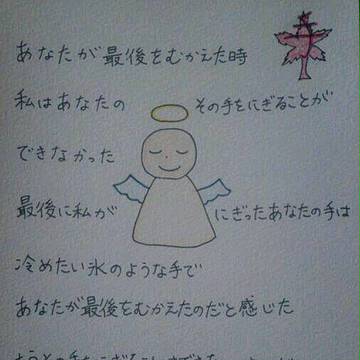 あなたが最後をむかえた時
私はあなたの その手をにぎることが
できなかった
最後に私が にぎったあなたの手は
冷めたい氷のような手で
あなたが最後をむかえたのだと感じた